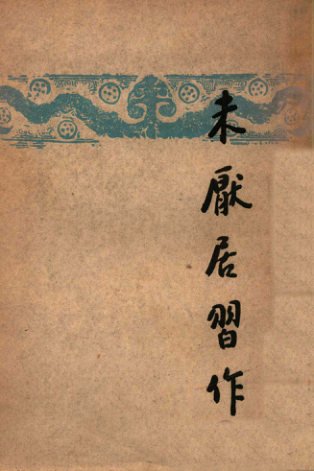 未厭居習作